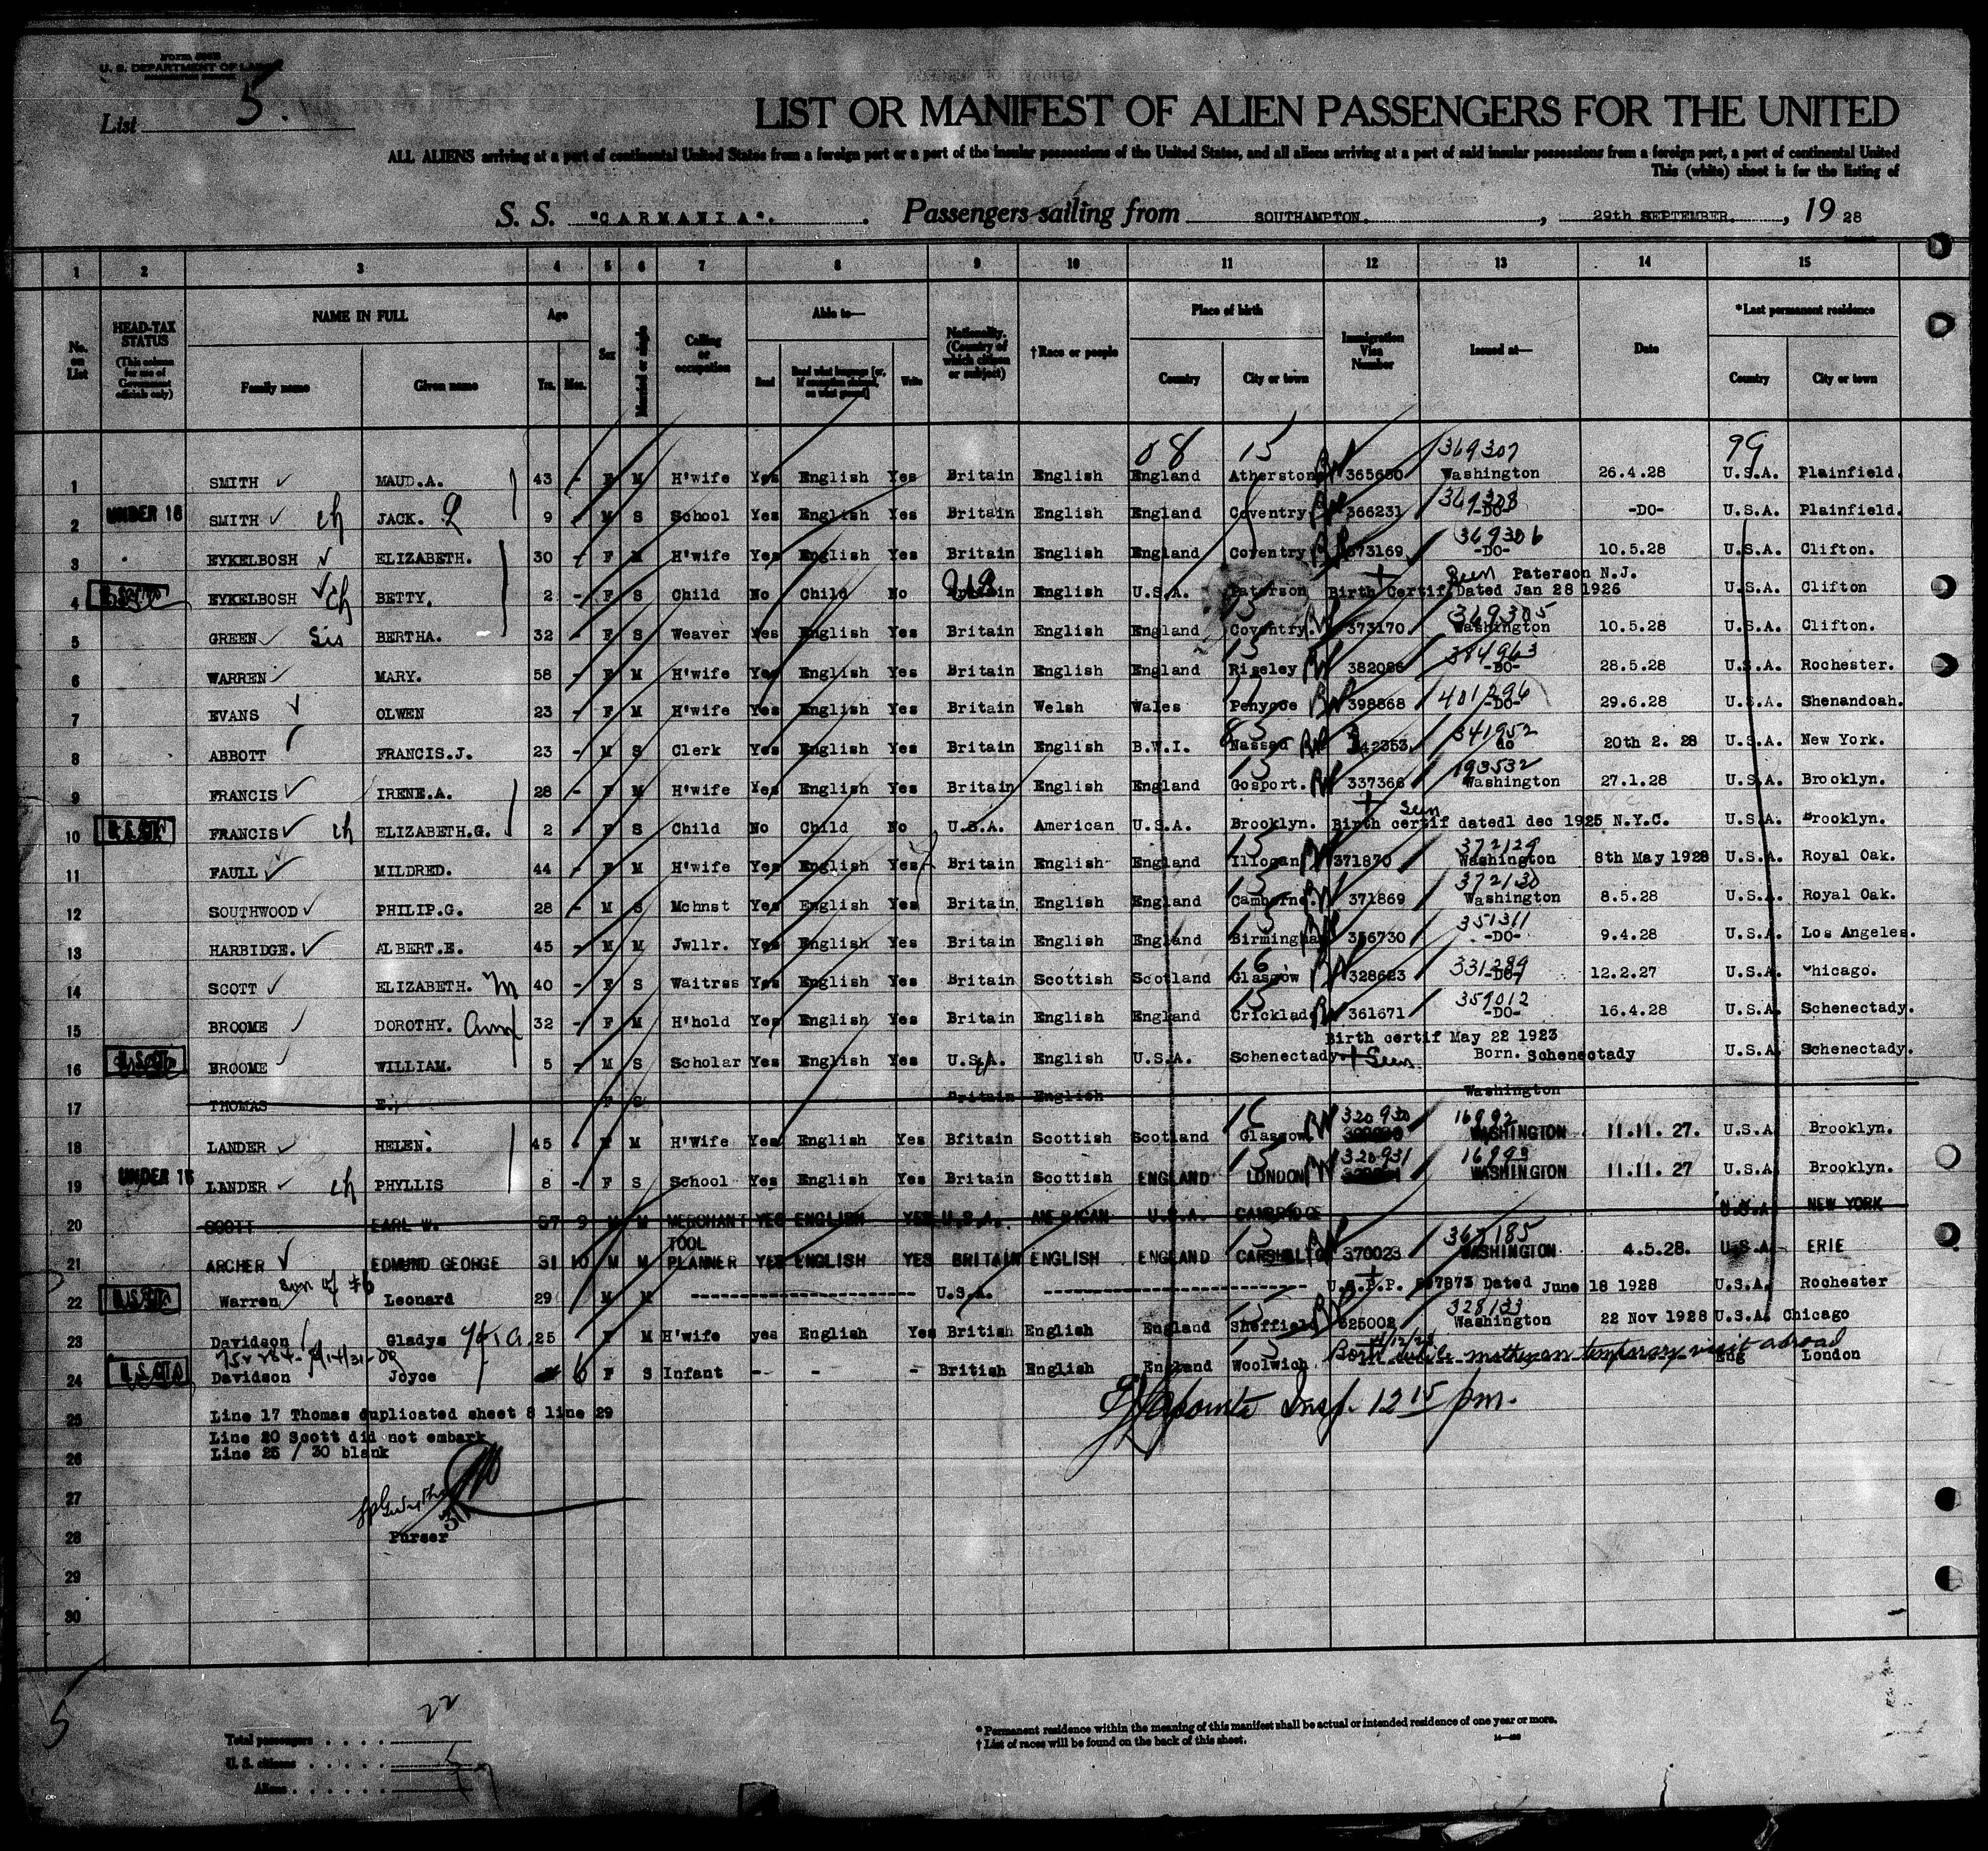 U. S. DEPARTMENT OF LABOR
List 5.
LIST OR MANIFEST OF ALIEN PASSENGERS FOR THE UNITED
ALL ALIENS arriving at a port of continental United States from a foreign port or a port of the insular possessions of the United States, and all aliens arriving at a port of said insular possessions from a foreign port, a port of continental United
This (white) sheet is for the listing of
S. S. "CARMANIA". Passengers sailing from SOUTHAMPTON. , 29th SEPTEMBER. , 19 28
1 2 3 4 5 6 7 8 9 10 11 12 13 14 15
No. on List
HEAD-TAX STATUS (This column for use of Government officials only)
NAME IN FULL Family name Given name
Age Yrs. Mos.
Sex
Married or single
Calling or occupation
Able to— Read Read what language [or, if exemption claimed, on what ground] Write
Nationality. (Country of which citizen or subject)
†Race or people
Place of birth Country City or town
Immigration Visa Number
Issued at—
Date
*Last permanent residence Country City or town
08 15 369307 99
1 SMITH MAUD.A. 43 - F M H'wife Yes English Yes Britain English England Atherston 365650 Washington 26.4.28 U.S.A. Plainfield.
369308
2 UNDER 16 SMITH ch JACK. 9 - M S School Yes English Yes Britain English England Coventry 366231 -DO- -DO- U.S.A. Plainfield.
369306
3 EYKELBOSH ELIZABETH. 30 - F M H'wife Yes English Yes Britain English England Coventry 373169 -DO- 10.5.28 U.S.A. Clifton.
Seen Paterson N.J.
4 EYKELBOSH ch BETTY. 2 - F S Child No Child No US U.S.A. Paterson Birth Certif Dated Jan 28 1926 U.S.A. Clifton
15 369305
5 GREEN Sis BERTHA. 32 - F S Weaver Yes English Yes Britain English England Coventry. 373170 Washington 10.5.28 U.S.A. Clifton.
15 384963
6 WARREN MARY. 58 - F M H'wife Yes English Yes Britain English England Riseley 382086 -DO- 28.5.28 U.S.A. Rochester.
401296
7 EVANS OLWEN 23 - F M H'wife Yes English Yes Britain Welsh Wales 398868 -DO- 29.6.28 U.S.A. Shenandoah.
341952
8 ABBOTT FRANCIS.J. 23 - M S Clerk Yes English Yes Britain English B.W.I. Nassau 342353 do 20th 2. 28 U.S.A. New York.
15 193532
9 FRANCIS IRENE.A. 28 - F M H'wife Yes English Yes Britain English England Gosport. 337366 Washington 27.1.28 U.S.A. Brooklyn.
Seen
10 U.S.CTZ FRANCIS ch ELIZABETH.G. 2 - F S Child No Child No U.S.A. American U.S.A. Brooklyn. Birth certif dated1 dec 1925 N.Y.C. U.S.A. Brooklyn.
15 372129
11 FAULL MILDRED. 44 - F M H'wife Yes English Yes Britain English England Illogan 371870 Washington 8th May 1928 U.S.A. Royal Oak.
15 372130
12 SOUTHWOOD PHILIP.G. 28 - M S Mchnst Yes English Yes Britain English England Camborne. 371869 Washington 8.5.28 U.S.A. Royal Oak.
15 351311
13 HARBIDGE. ALBERT.E. 45 - M M Jwllr. Yes English Yes Britain English England Birmingham 356730 -DO- 9.4.28 U.S.A. Los Angeles.
16 331289
14 SCOTT ELIZABETH. 40 - F S Waitrss Yes English Yes Britain Scottish Scotland Glasgow 328623 -DO- 12.2.27 U.S.A. Chicago.
15 359012
15 BROOME DOROTHY. 32 - F M H'hold Yes English Yes Britain English England Cricklade 361671 -DO- 16.4.28 U.S.A. Schenectady.
Birth certif May 22 1923
16 BROOME WILLIAM. 5 - M S Scholar Yes English Yes U.S.A. English U.S.A. Schenectady. Seen Born. Schenectady U.S.A. Schenectady.
17 THOMAS E. F S Britain English Washington
16 320930 16992
18 LANDER HELEN. 45 - F M H'Wife Yes English Yes Bfitain Scottish Scotland Glasgow WASHINGTON 11.11. 27. U.S.A. Brooklyn.
15 320931 16993
19 UNDER 16 LANDER ch PHYLLIS 8 - F S School Yes English Yes Britain Scottish ENGLAND LONDON WASHINGTON 11.11. 27 U.S.A. Brooklyn.
20 SCOTT EARL W. 57 9 M M MERCHANT YES ENGLISH YES U.S.A. AMERICAN U.S.A. CAMBRIDGE U.S.A NEW YORK
TOOL 15 367185
21 ARCHER EDMUND GEORGE 31 10 M M PLANNER YES ENGLISH YES BRITAIN ENGLISH ENGLAND CARSHALTO 370023 WASHINGTON 4.5.28. U.S.A ERIE
son of #6
22 Warren Leonard 29 M M U.S.A. U.S.P.P. Dated June 18 1928 U.S.A. Rochester
328133
23 Davidson Gladys 25 F M H'wife yes English Yes British English England Sheffield 625002 Washington 22 Nov 1928 U.S.A. Chicago
Born while mother on temporary visit abroad
24 Davidson Joyce 6 F S Infant -- - - British English England Woolwich Eng London
25 Line 17 Thomas duplicated sheet 8 line 29
Line 20 Scott did not embark
26 Line 25 / 30 blank
Insp. 12 15 pm.
27
28 Purser
29
30
5
22
Total passengers
U. S. citizens
Aliens
* Permanent residence within the meaning of this manifest shall be actual or intended residence of one year or more.
† List of races will be found on the back of this sheet.